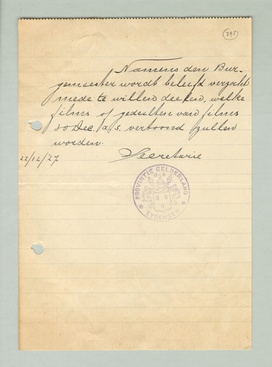 395
Namens den Bur-
gemeester wordt beleefd verzocht
mede te willen deelen, welke
films of gedeelten van films
30 Dec. a.s. vertoond zullen
worden.
22/12/27
Secretarie
PROVINTIE GELDERLAND